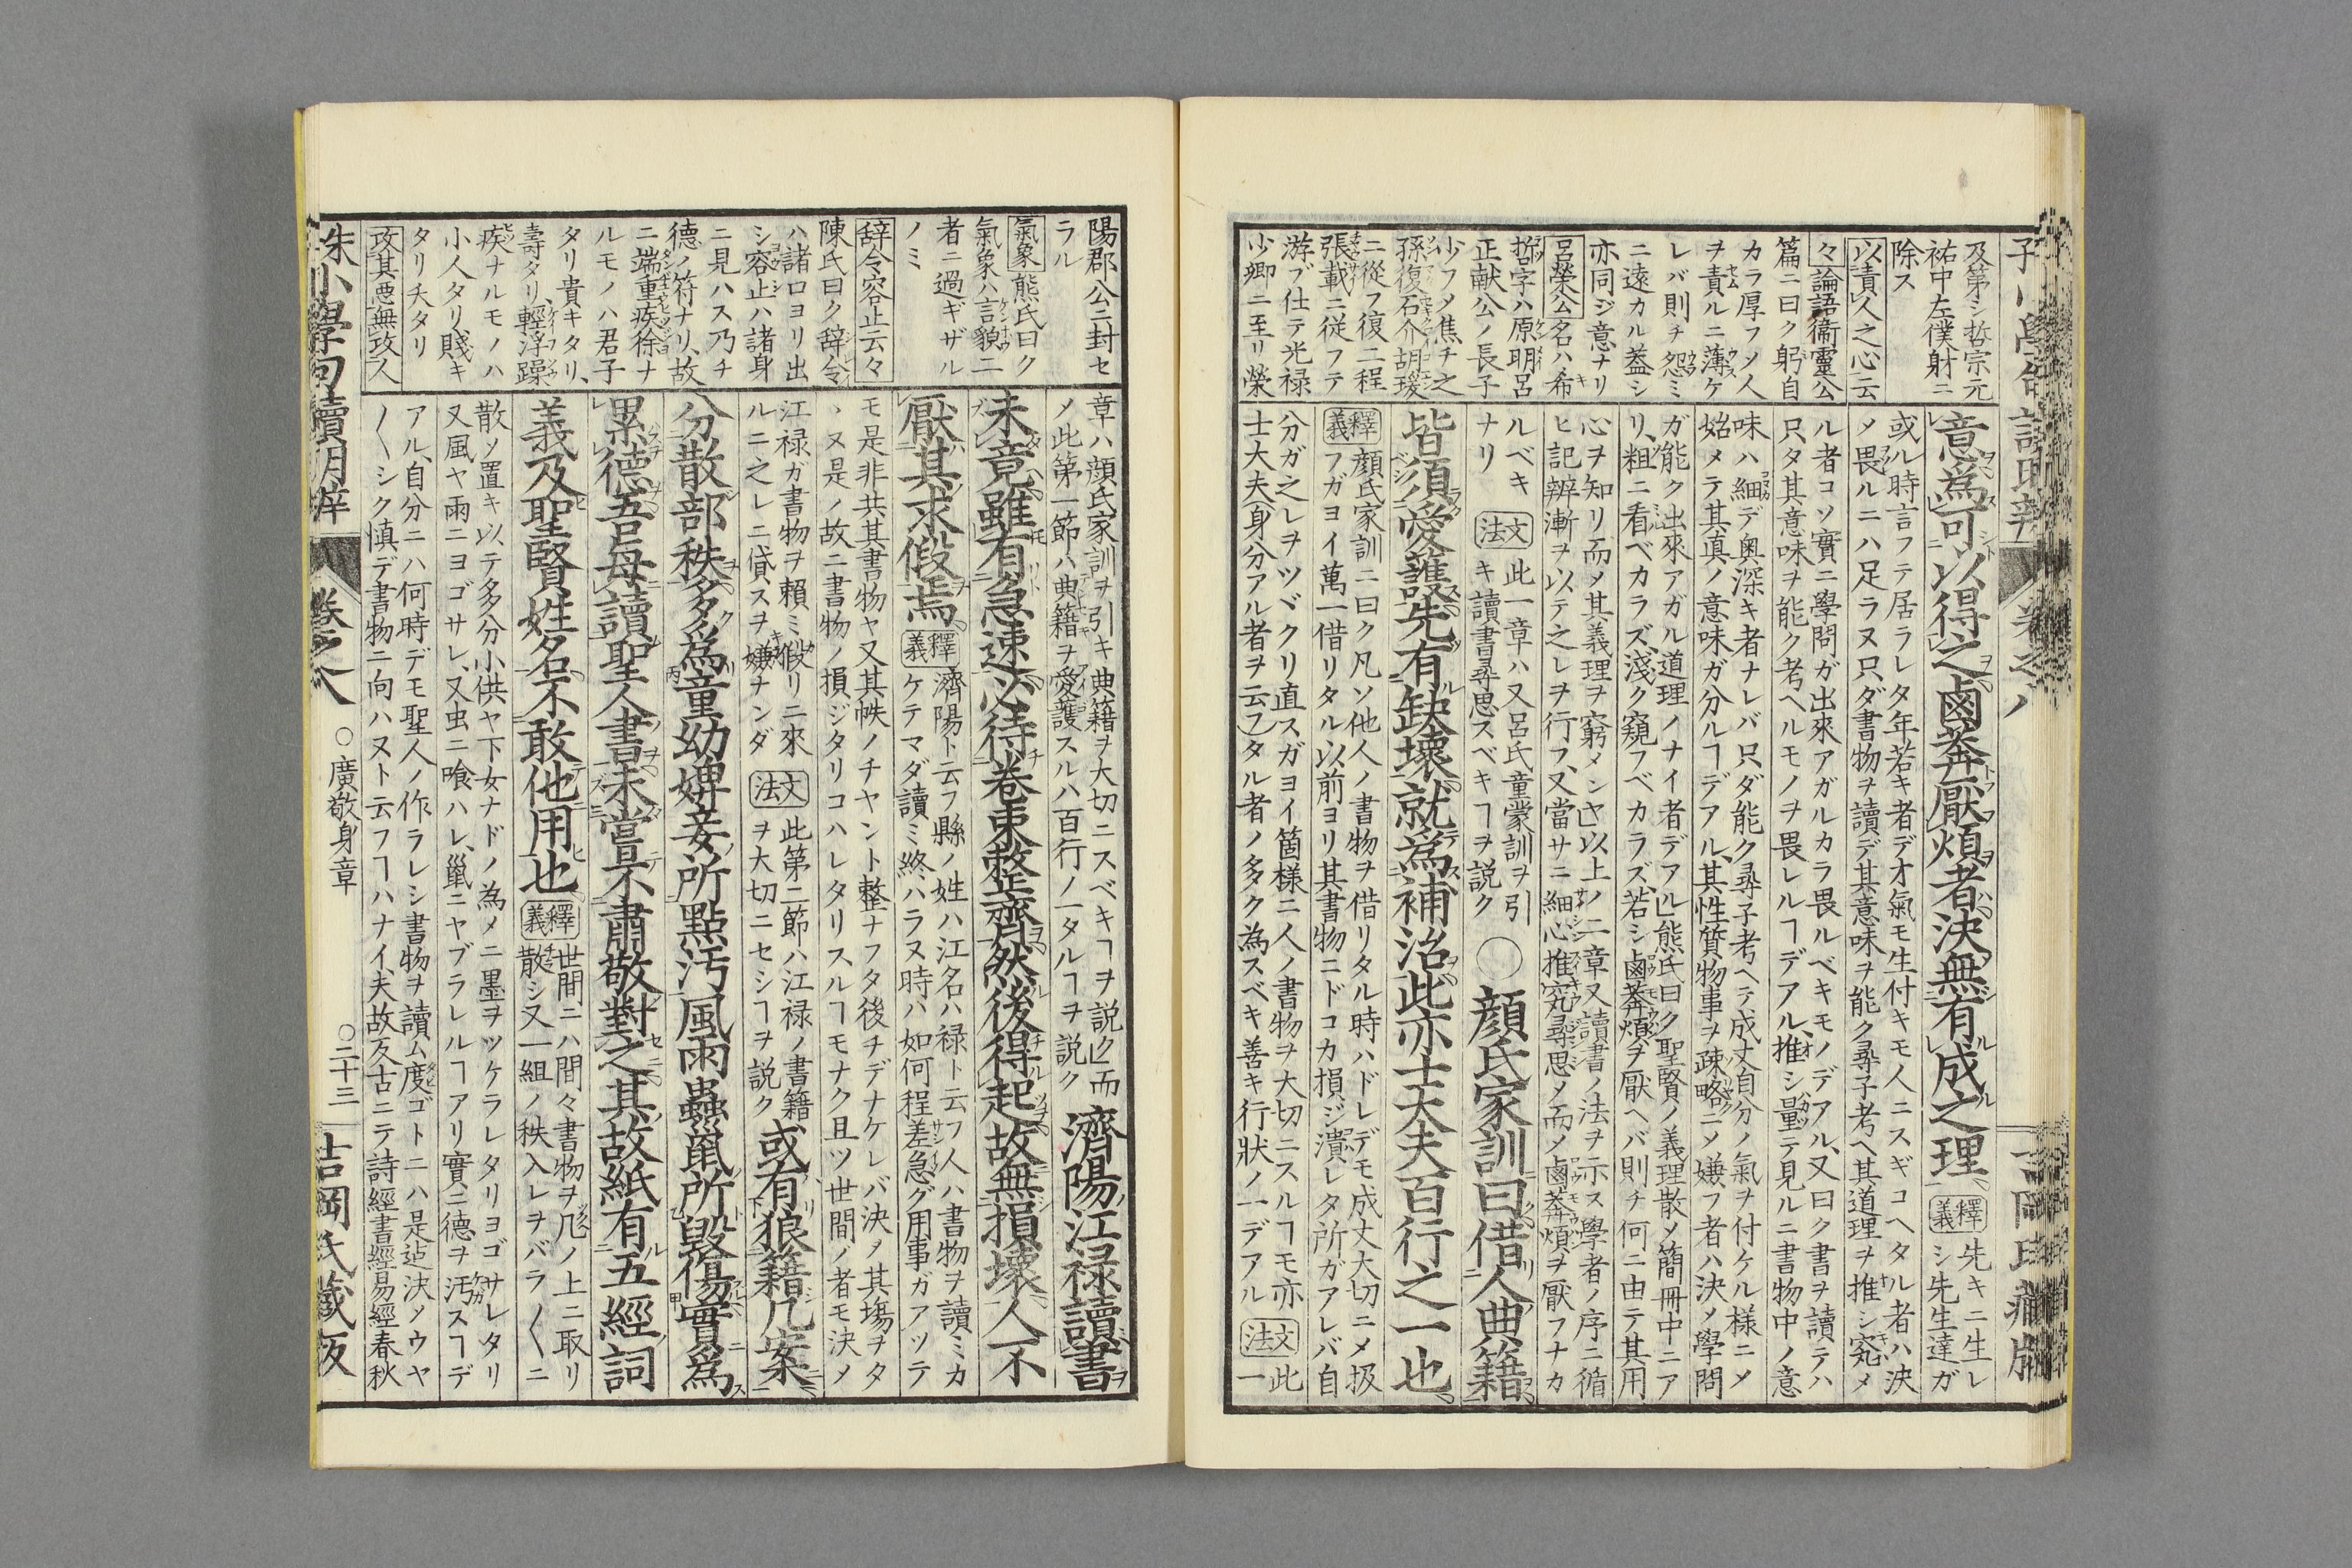 及第シ哲宗元
祐中左僕射ニ
除ス
以責人之心云
々論語衞靈公
篇ニ曰ク躬自
カラ厚フメ人
ヲ責ルニ薄ケ
レバ則チ怨ミ
ニ遠カル葢シ
亦同ジ意ナリ
呂榮公名ハ希
哲字ハ原明呂
正献公ノ長子
少フメ焦チ之
孫復石介胡瑗
ニ從フ復二程
張載ニ従フテ
游ブ仕テ光禄
少卿ニ至リ榮
意爲可以得之鹵莽厭煩者決無有成之理
釋義 先キニ生レ
シ先生達ガ
或ル時言フテ居ラレタ年若キ者デオ氣モ生付キモ人ニスギコヘタル者ハ決
メ畏ルニハ足ラヌ只ダ書物ヲ讀デ其意味ヲ能ク尋子考ヘ其道理ヲ推シ究メ
ル者コソ實ニ學問ガ出來アガルカラ畏ルベキモノデアル、又曰ク書ヲ讀テハ
只タ其意味ヲ能ク考ヘルモノヲ畏レルヿデアル、推シ量テ見ルニ書物中ノ意
味ハ細デ奥深キ者ナレバ只ダ能ク尋子考ヘテ成丈自分ノ氣ヲ付ケル様ニメ
始メテ其真ノ意味ガ分ルヿデアル、其性質物事ヲ疎略ニメ嫌フ者ハ決メ學問
ガ能ク出來アガル道理ノナイ者デアル 熊氏曰ク聖賢ノ義理散メ簡冊中ニア
リ、粗ニ看ベカラズ、淺ク窺フベカラズ、若シ鹵莽煩ヲ厭ヘバ則チ何ニ由テ其用
心ヲ知リ而メ其義理ヲ窮メンヤ以上ノ二章又讀書ノ法ヲ示ス學者ノ序ニ循
ヒ記辨漸ヲ以テ之レヲ行フ、又當サニ細心推究尋思メ而メ鹵莽煩ヲ厭フナカ
ルベキ
ナリ
文法 此一章ハ又呂氏童蒙訓ヲ引
キ讀書尋思スベキヿヲ説ク
○顔氏家訓曰借人典籍
皆須愛護先有缺壊就爲補治此亦士大夫百行之一也
釋義 顔氏家訓ニ曰ク凡ソ他人ノ書物ヲ借リタル時ハドレデモ、成丈大切ニメ扱
フガヨイ萬一借リタル以前ヨリ其書物ニドコカ損ジ潰レタ所ガアレバ自
分ガ之レヲツヾクリ直スガヨイ箇様ニ人ノ書物ヲ大切ニスルヿモ亦
士大夫(身分アル者ヲ云フ)タル者ノ多ク為スベキ善キ行狀ノ一デアル
文法 此
一
陽郡公ニ封セ
ラル
氣象熊氏曰ク
氣象ハ言貌二
者ニ過ギザル
ノミ
辞令容止云々
陳氏曰ク辞令
ハ諸口ヨリ出
シ容止ハ諸身
ニ見ハス乃チ
德ノ符ナリ、故
ニ端重疾徐ナ
ルモノハ君子
タリ貴キタリ、
壽タリ、輕浮躁
疾ナルモノハ
小人タリ賤キ
タリ夭タリ
攻其悪無攻人
章ハ顔氏家訓ヲ引キ典籍ヲ大切ニスベキヿヲ説ク而
メ此第一節ハ典籍ヲ愛護スルハ百行ノ一タルヿヲ説ク
濟陽江禄讀書
未竟雖有急速必待卷束整齊然後得起故無損壊人不
厭其求假焉
釋義 濟陽ト云フ縣ノ姓ハ江名ハ禄ト云フ人ハ書物ヲ讀ミカ
ケテマダ讀ミ終ハラヌ時ハ如何程差急グ用事ガアツテ
モ是非共其書物ヤ又其帙ノチヤント整ナフタ後チデナケレバ決メ其場ヲタ
ヽヌ是ノ故ニ書物ノ損ジタリコハレタリスルヿモナク且ツ世間ノ者モ決メ
江禄ガ書物ヲ賴ミ假リニ來
ルニ之レニ貸スヲ嫌ナンダ
文法 此第二節ハ江禄ノ書籍
ヲ大切ニセシヿヲ説ク
或有狼籍几案
分散部秩多爲童幼婢妾所點汚風雨蟲鼠所毀傷實爲
累德吾毎讀聖人書未甞不肅敬對之其故紙有五經詞
義及聖賢姓名不敢他用也
釋義 世間ニハ間々書物ヲ几ノ上ニ取リ
散シ又一組ノ秩入レヲバラ〱ニ
散メ置キ以テ多分小供ヤ下女ナドノ為メニ墨ヲツケラレタリヨゴサレタリ
又風ヤ雨ニヨゴサレ、又虫ニ喰ハレ、鼠ニヤブラレルヿアリ實ニ德ヲ汚スヿデ
アル、自分ニハ何時デモ聖人ノ作ラレシ書物ヲ讀ム度ゴトニハ是迠決メウヤ
〱シク慎デ書物ニ向ハヌト云フヿハナイ、夫故反古ニテ詩經書經易經春秋
朱小學句讀明辨 卷之八 ○廣敬身章 ○二十三 吉岡氏藏版